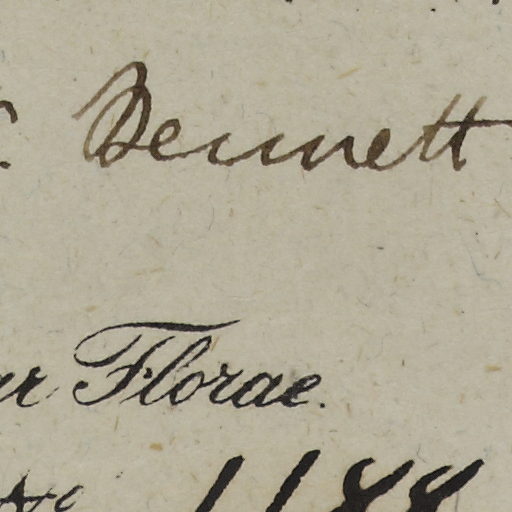 Bennett
Florae.
1188